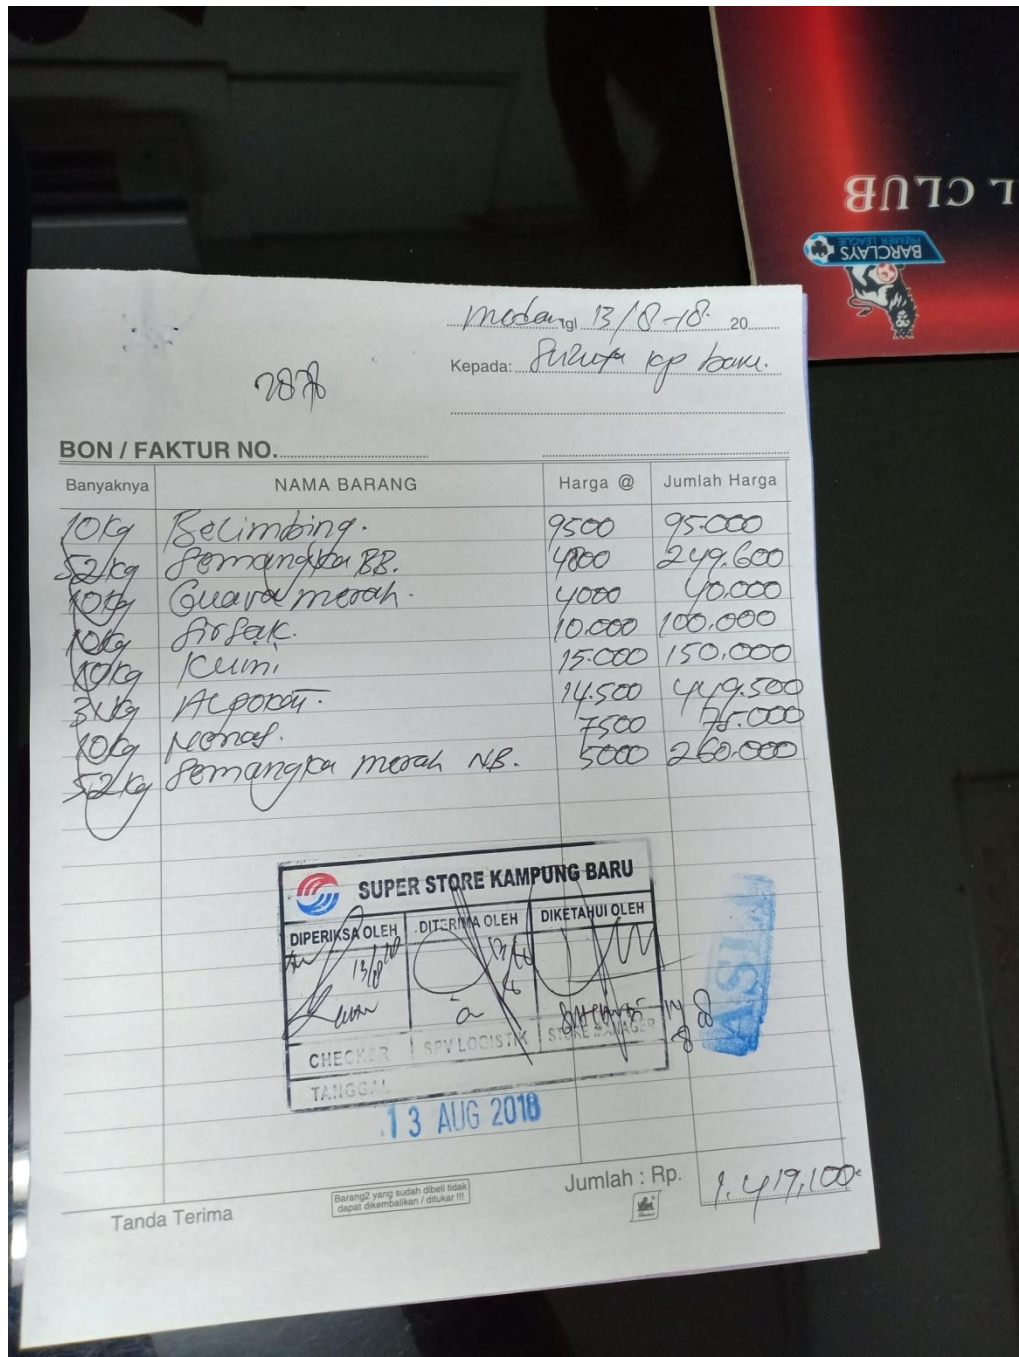 L CLUB
BARCLAYS
PREMIER LEAGUE
Medan, tgl 13/8-18. 20
Kepada: Suzuya kp baru.
2878
BON / FAKTUR NO.
Banyaknya NAMA BARANG Harga @ Jumlah Harga
10kg Belimbing. 9500 95.000
52kg Semangka BB. 4800 249.600
10kg Guava merah. 4000 40.000
10kg Sirsak. 10.000 100.000
10kg Kuini 15.000 150.000
31kg Alpokat. 14.500 449.500
10kg Nenas. 7500 75.000
52kg Semangka merah NB. 5000 260.000
SUPER STORE KAMPUNG BARU
DIPERIKSA OLEH DITERIMA OLEH DIKETAHUI OLEH
13/8 18
CHECKER SPV LOGISTIK STORE MANAGER
TANGGAL
13 AUG 2018
ASLI
Jumlah : Rp. 1.419,100
Barang2 yang sudah dibeli tidak
dapat dikembalikan / ditukar !!!
Tanda Terima